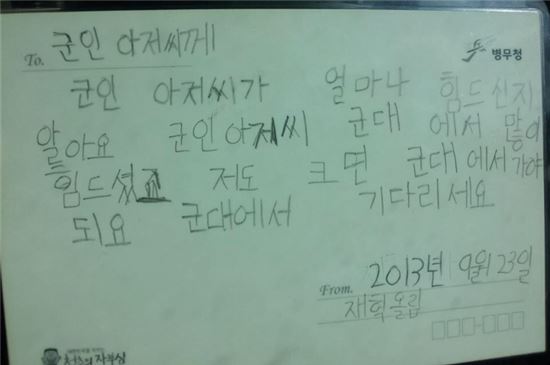 To. 군인 아저씨께
병무청
군인 아저씨가 얼마나 힘드신지
알아요 군인아저씨 군대에서 많이
힘드셨죠 저도 크면 군대에서가야
되요 군대에서 기다리세요
From. 2013년 9월 23일
재혁올림